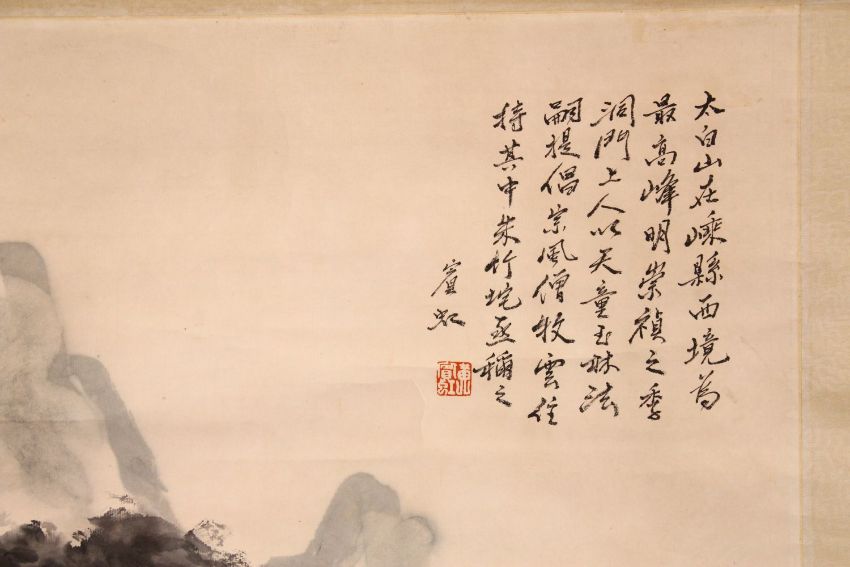 太白山在嵊縣西境為
最高峰明崇禎之季
洞門上人以天童玉林法
嗣提倡宗風僧牧雲住
持其中朱竹垞亟稱之
賓虹
黃賓虹